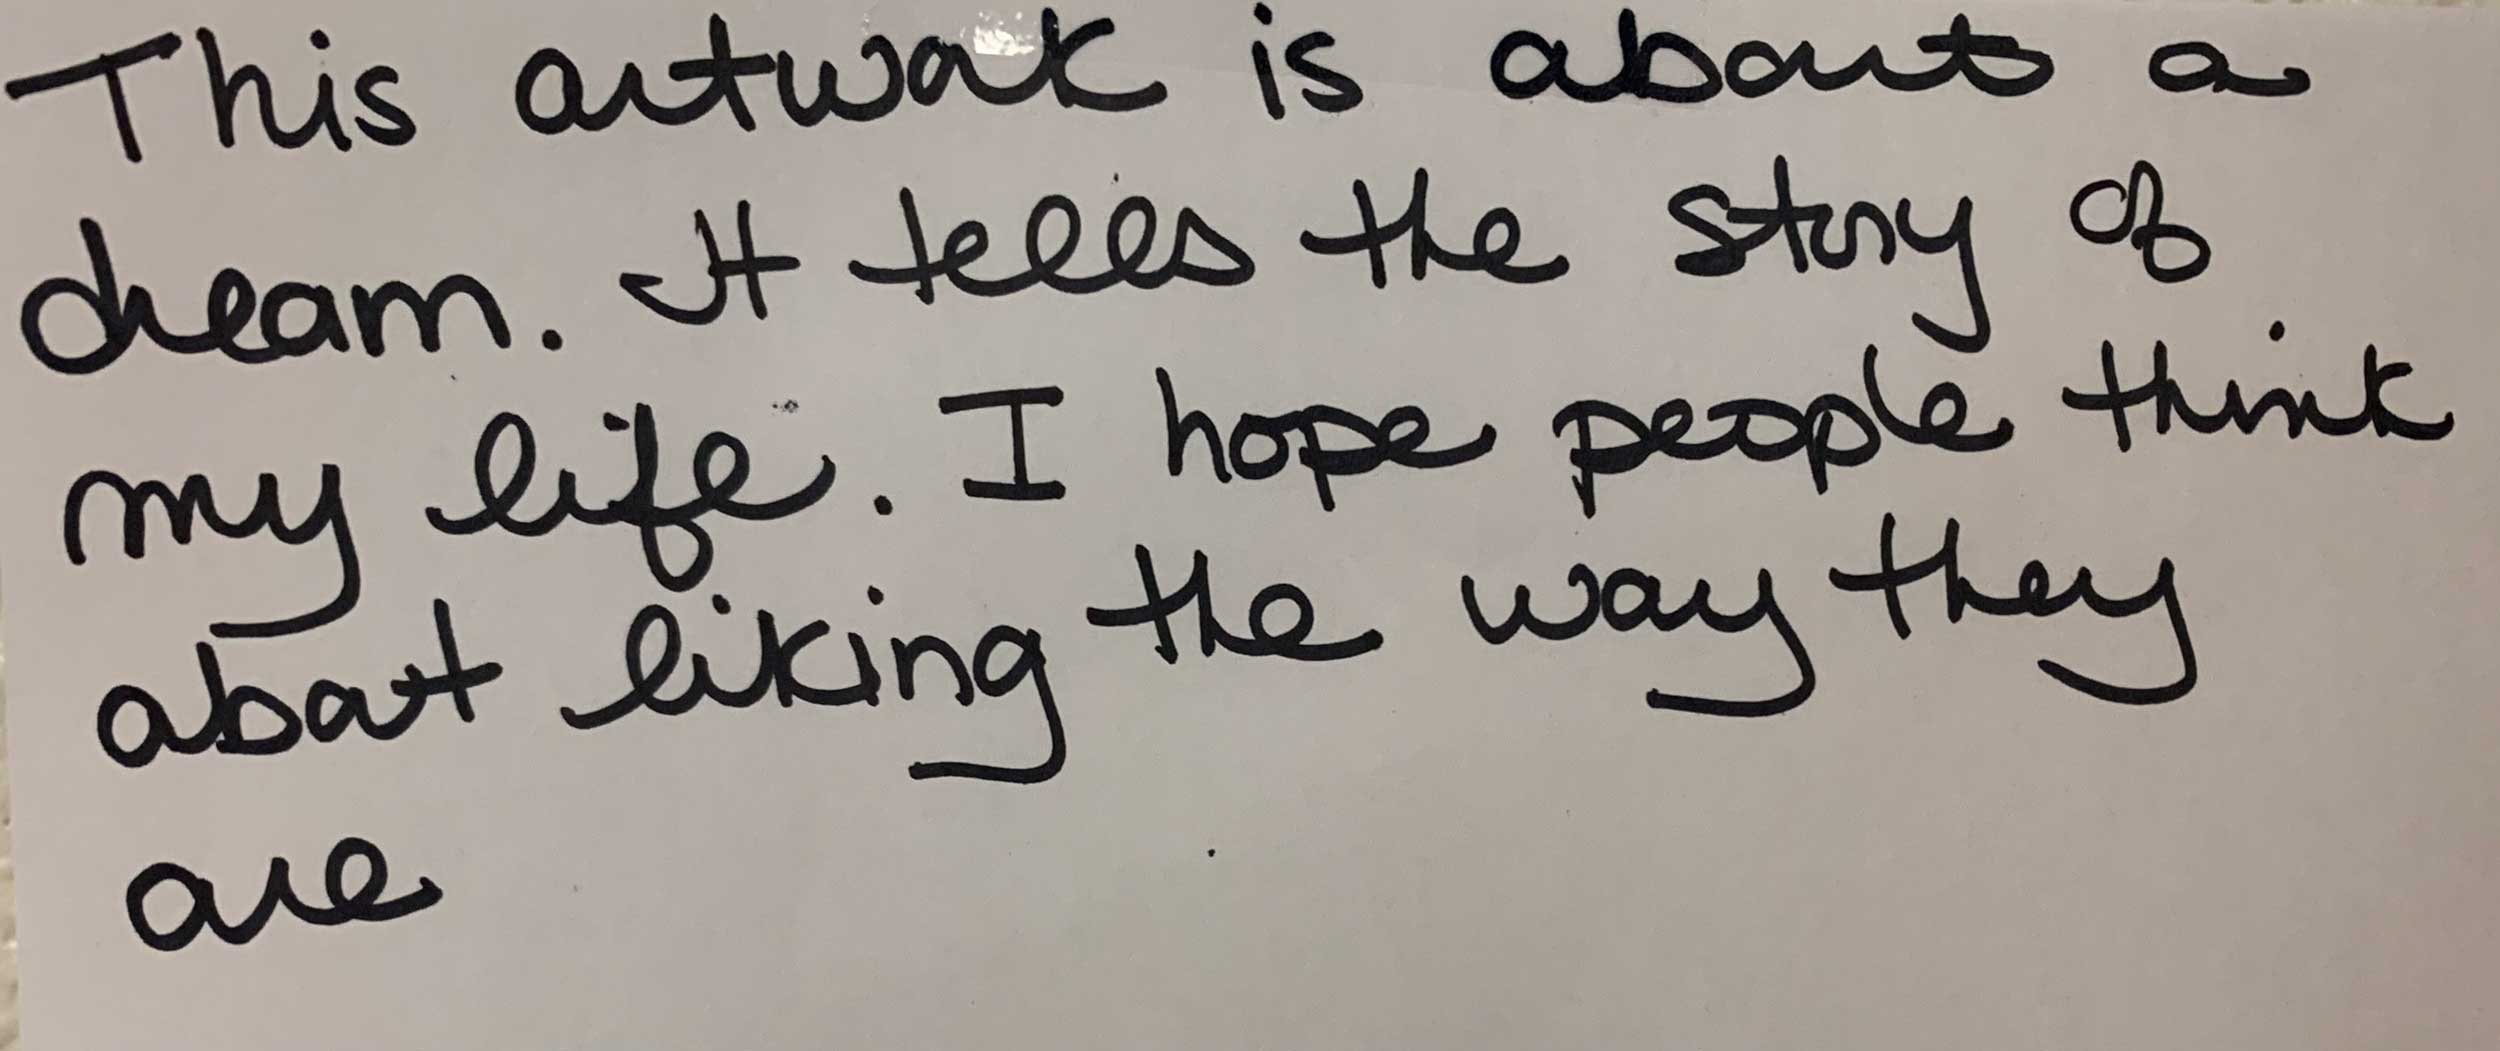 This artwork is about a
dream. It tells the story of
my life. I hope people think
about liking the way they
are